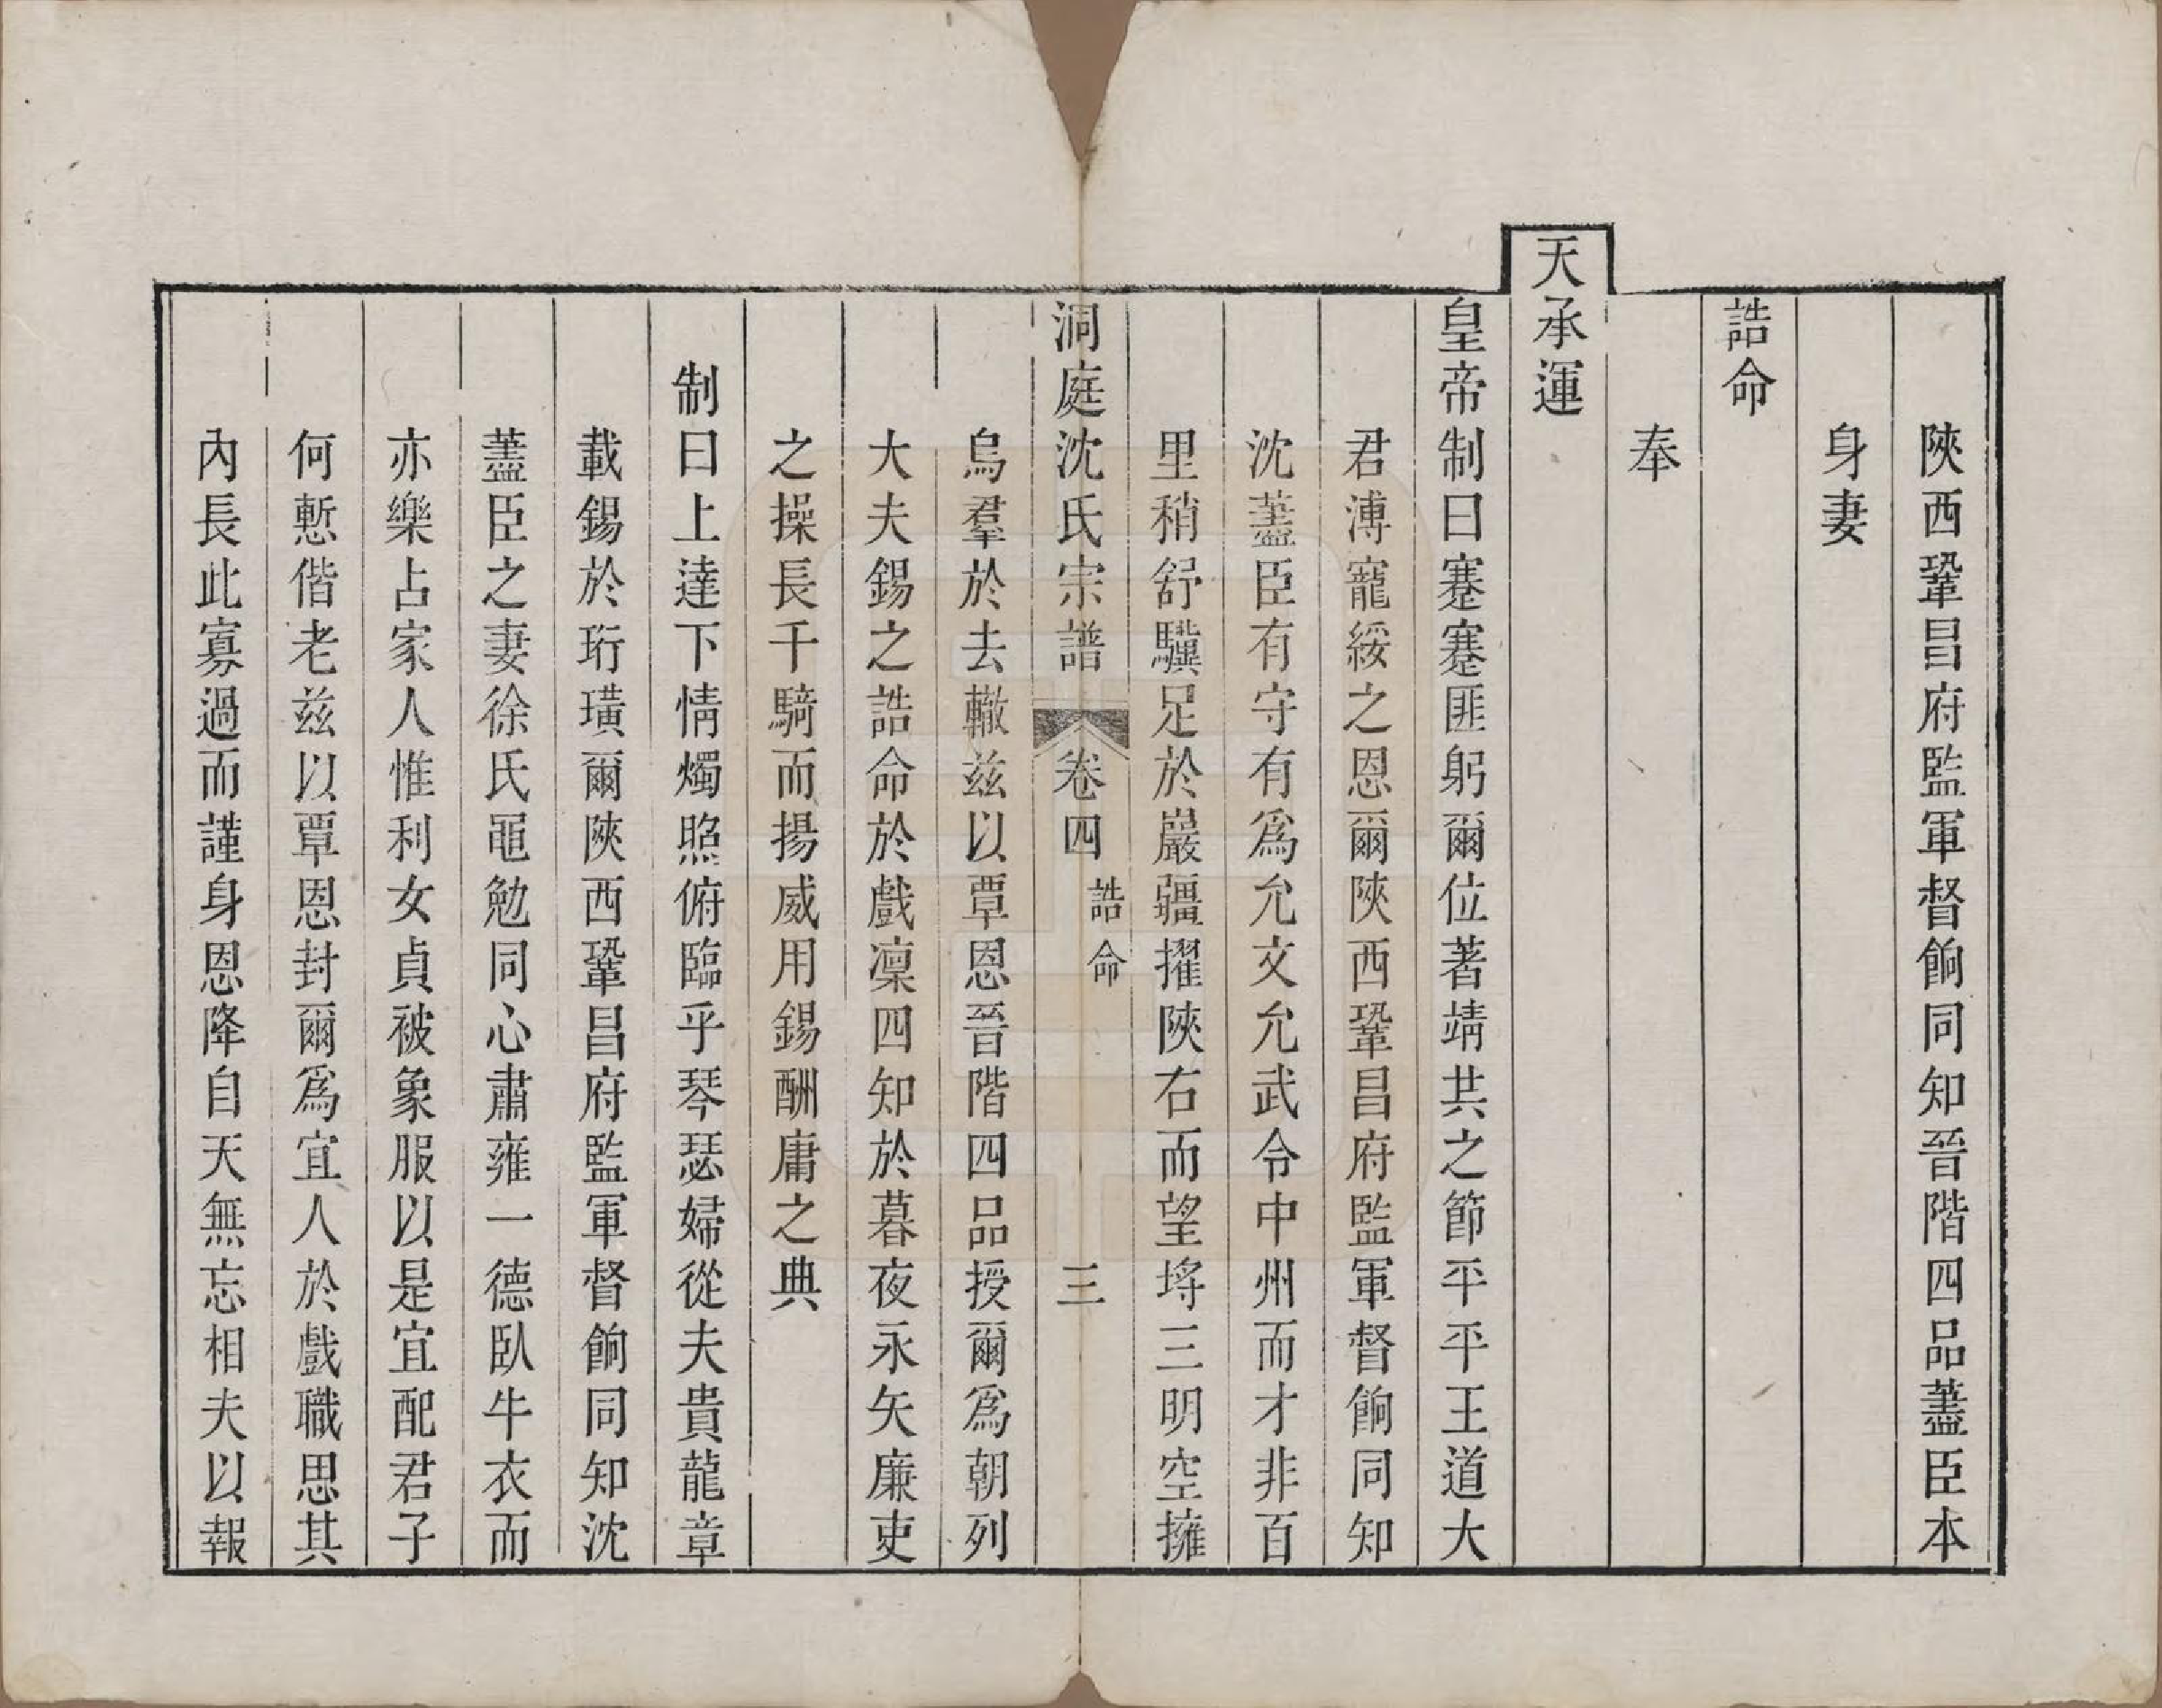 陝西鞏昌府監軍督餉同知晉階四品藎臣本
身妻
誥命
奉
天承運
皇帝制曰蹇蹇匪躬爾位著靖共之節平平王道大
君溥寵綏之恩爾陝西鞏昌府監軍督餉同知
沈藎臣有守有爲允文允武令中州而才非百
里稍舒驥足於巖疆擢陝右而望埒三明空擁
洞庭沈氏宗譜 卷四 誥命 三
烏羣於去轍兹以覃恩晉階四品授爾爲朝列
大夫錫之誥命於戲凜四知於暮夜永矢廉吏
之操長千騎而揚威用錫酬庸之典
制曰上達下情燭照俯臨乎琴瑟婦從夫貴龍章
載錫於珩璜爾陝西鞏昌府監軍督餉同知沈
藎臣之妻徐氏黽勉同心肅雍一德臥牛衣而
亦樂占家人惟利女貞被象服以是宜配君子
何慙偕老兹以覃恩封爾爲宜人於戲職思其
內長此寡過而謹身恩降自天無忘相夫以報